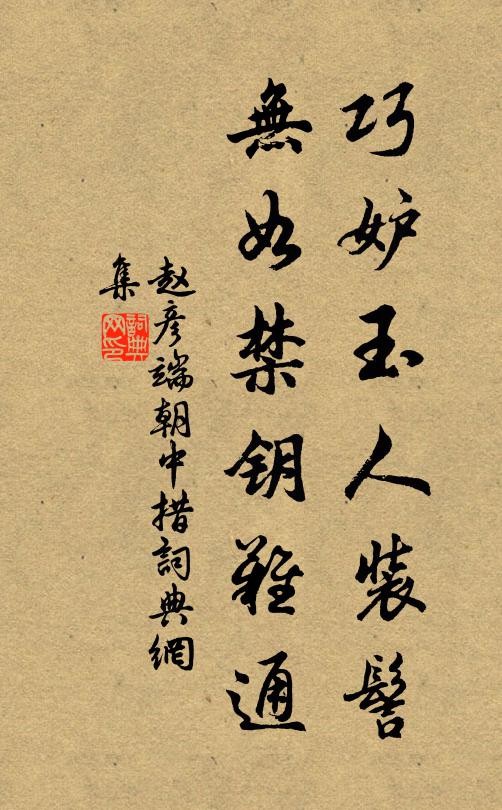 巧妒玉人装髻
無如禁钥難通
赵彦端朝中措詞典網
集
詞典
网印